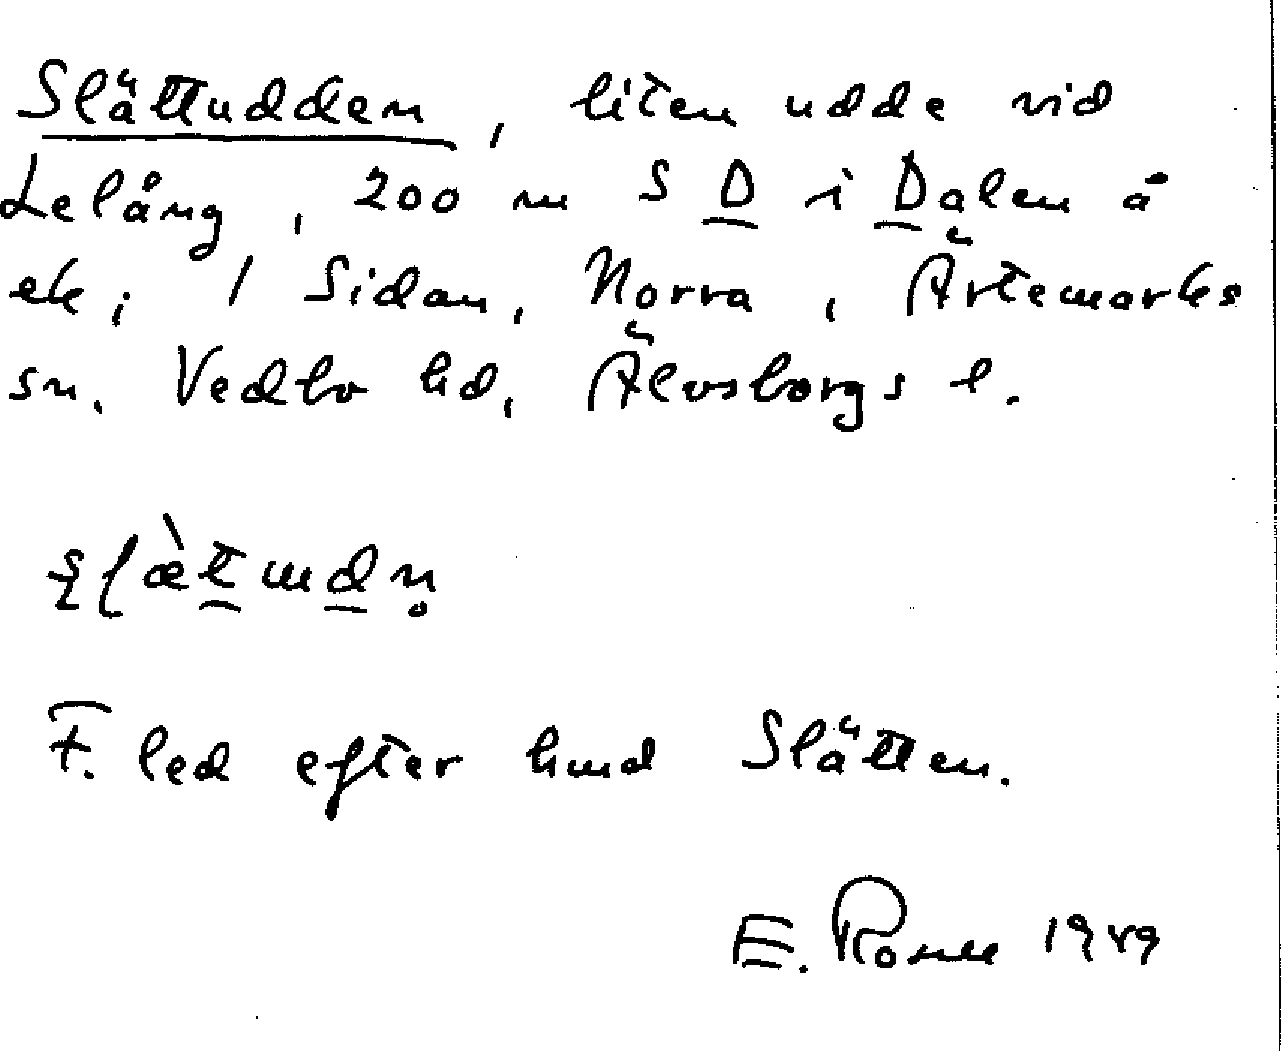 Slättudden, liten udde vid
Lelång, 200 m S D i Dalen å
ek; 1 Sidan, Norra, Ärtemarks
sn. Vedbo hd, Älvsborgs l.
F. led efter hmd Slätten.
E. 1949